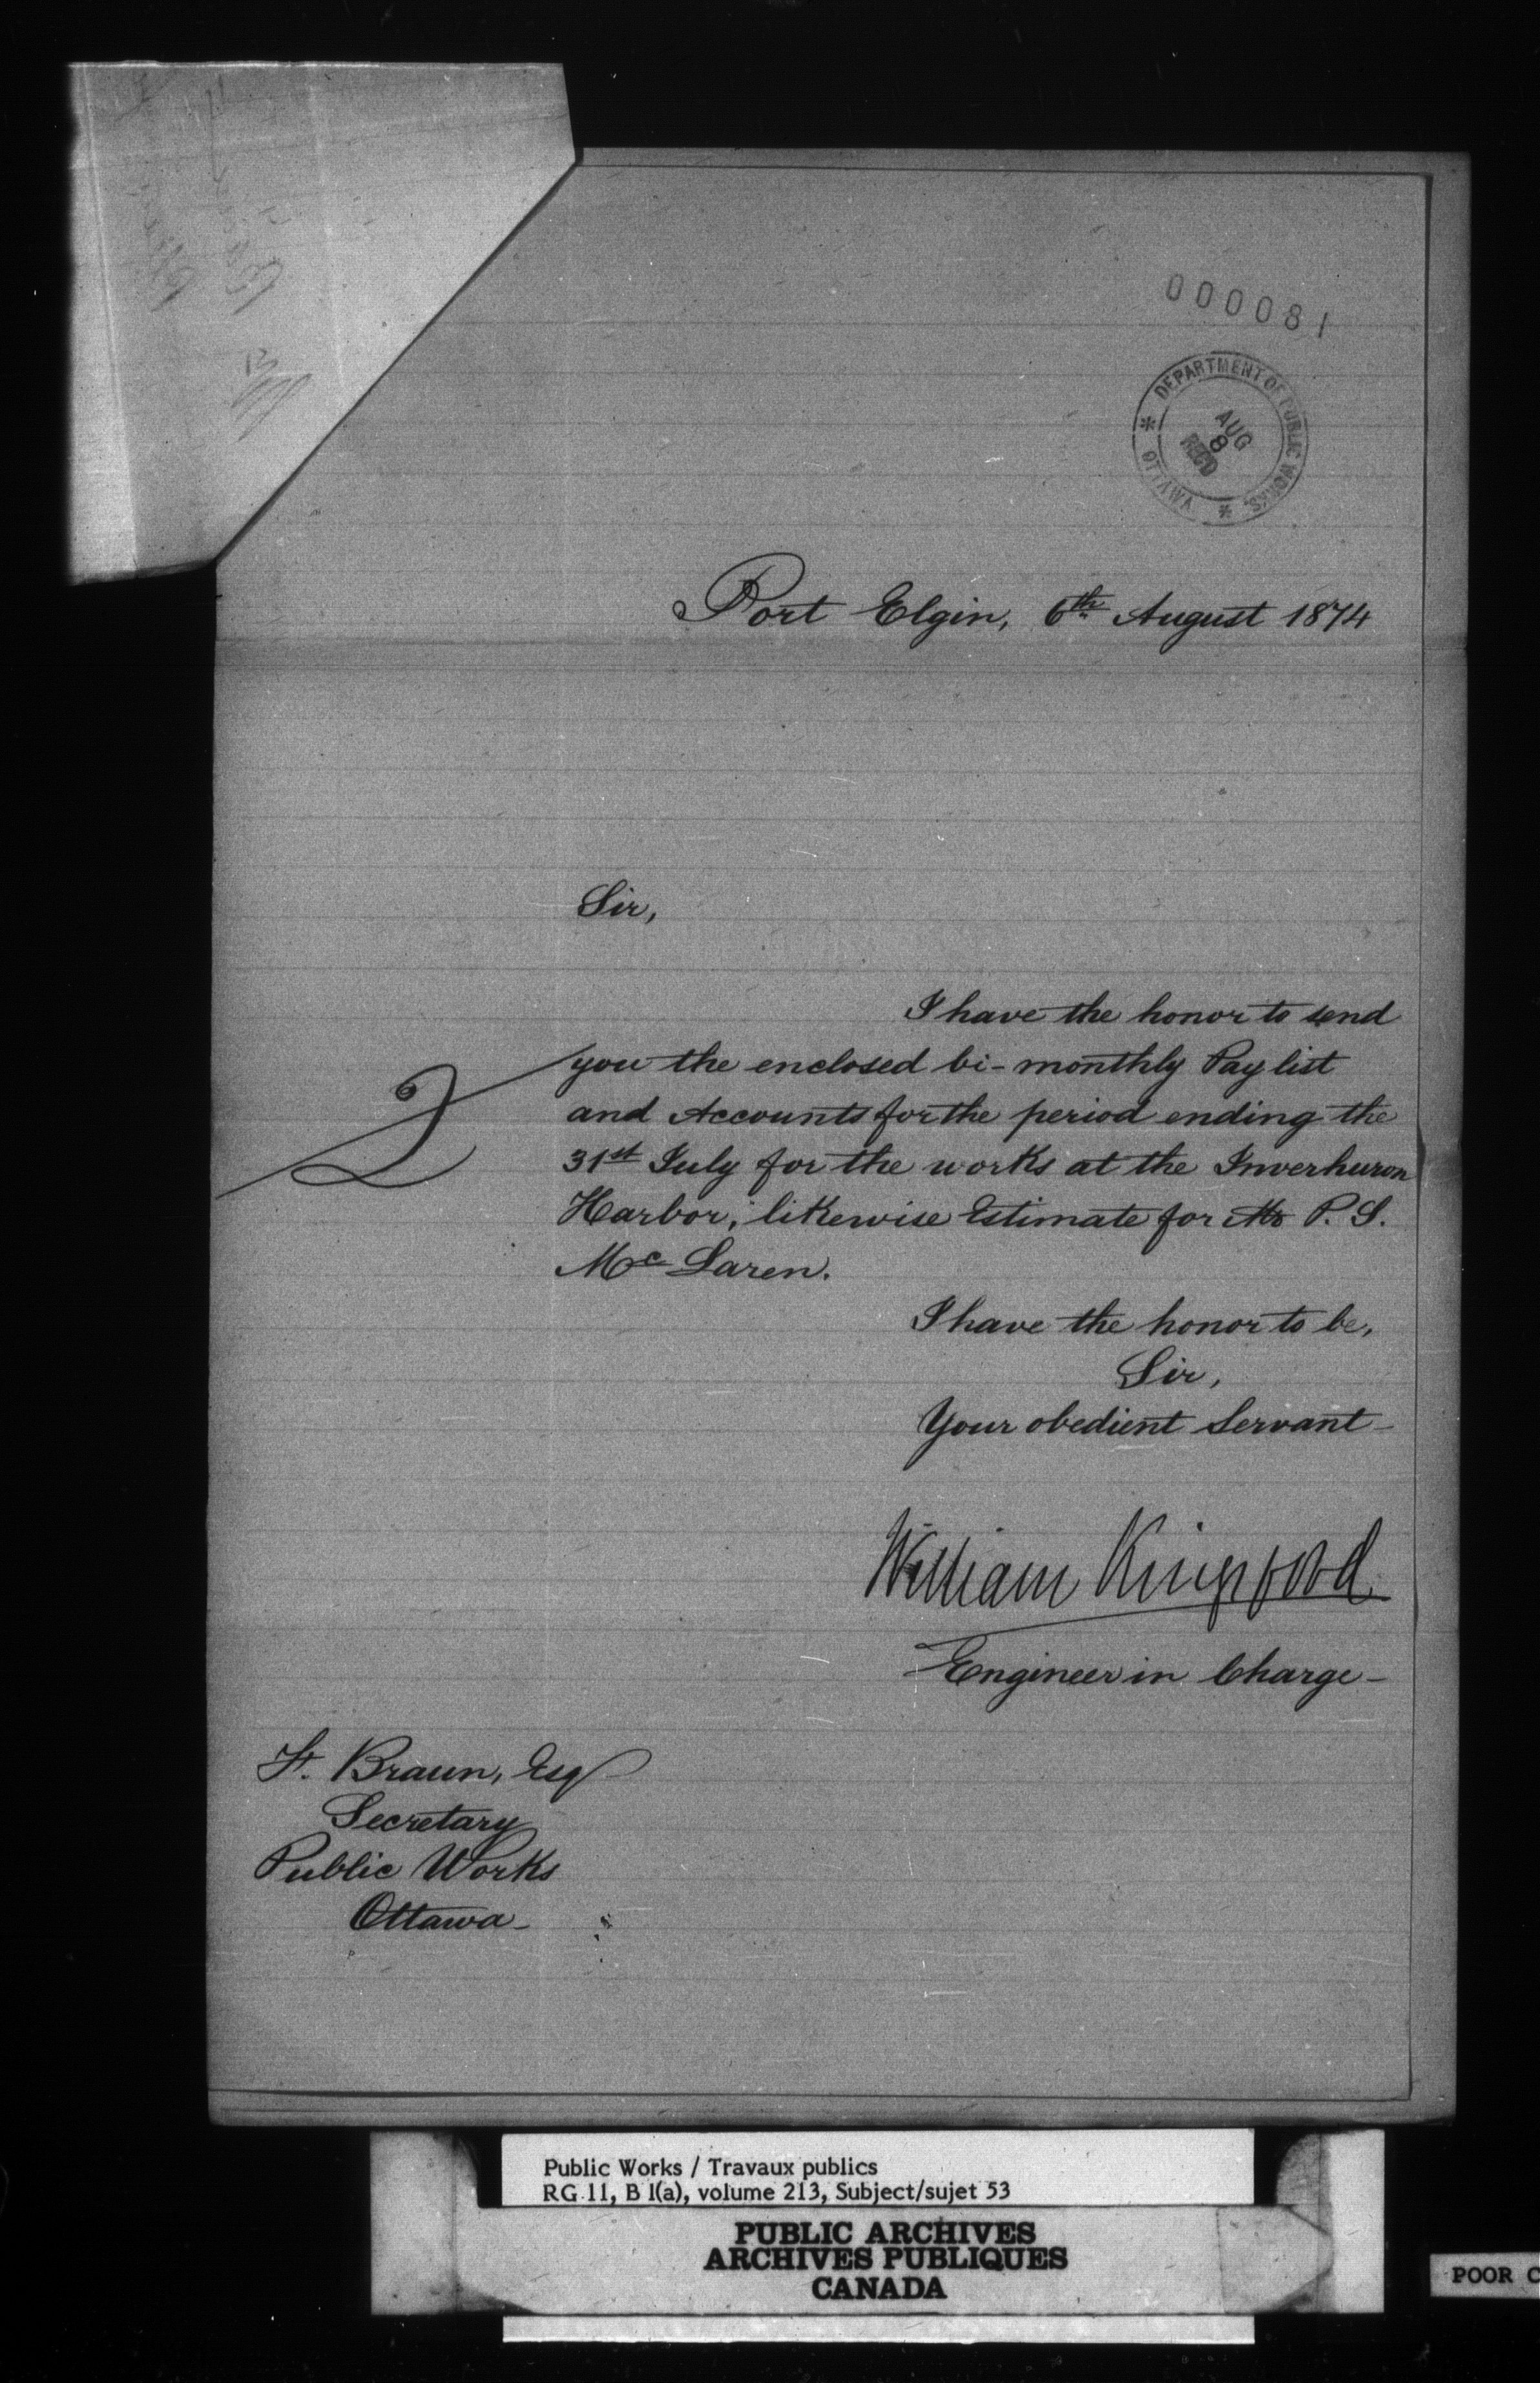 000081
DEPARTMENT OF PUBLIC WORKS
OTTAWA
AUG
8
RECD
Port Elgin, 6th August 1874
Sir,
I have the honor to send
you the enclosed bi-monthly Pay list
and Accounts for the period ending the
31st July for the works at the Inverhuron
Harbor; likewise Estimate for Mr P. S.
Mc Laren.
2
I have the honor to be,
Sir,
Your obedient Servant
William Kingsford
Engineer in Charge
F. Braun, Esq
Secretary
Public Works
Ottawa
Public Works / Travaux publics
RG 11, B 1(a), volume 213, Subject/sujet 53
PUBLIC ARCHIVES
ARCHIVES PUBLIQUES
CANADA
POOR C